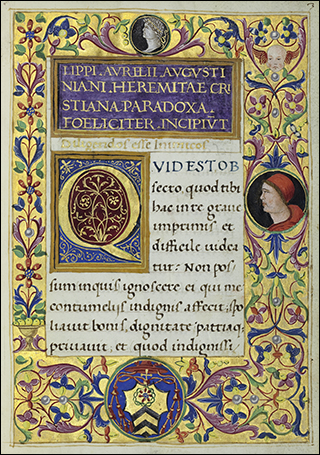 LIPPI. AVRELII. AVGVSTI
NIANI. HEREMITAE CRI
STIANA. PARADOXA.
FOELICITER. INCIPIV̄T
diligendos esse Inimicos
QVID EST OB
secro, quod tibi
hac in re graue
imprimis et
difficile uidea
tur: Non pos
sum inquis ignoscere ei qui me
contumelijs indignis affecit, spo
liauit bonis, dignitate patriaq;
priuauit, et quod indignissi